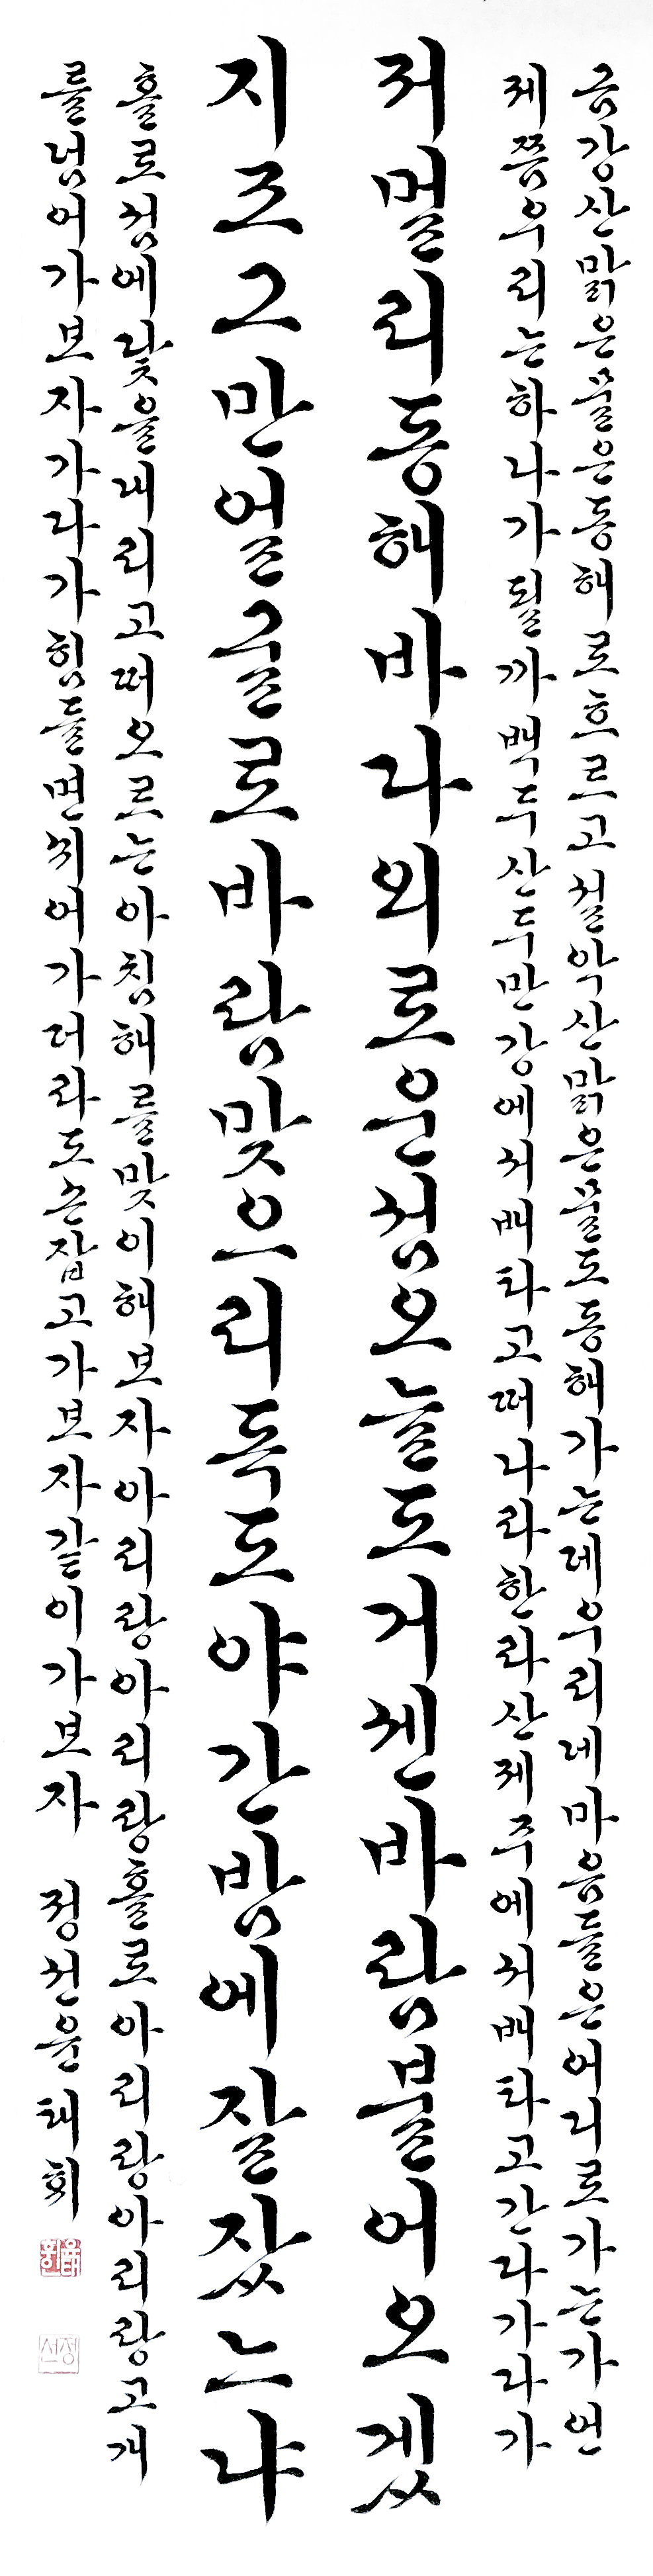 금강산맑은물은동해로흐르고설악산맑은물도동해가는데우리네마음들은어디로가는가언
제쯤우리는하나가될까백두산두만강에서배타고떠나라한라산제주에서배타고간다가다가
저멀리동해바다외로운섬오늘도거센바람불어오겠
지조그만얼굴로바람맞으리독도야간밤에잘잤느냐
홀로섬에닻을내리고떠오르는아침해를맞이해보자아리랑아리랑홀로아리랑아리랑고개
를넘어가보자가다가힘들면쉬어가더라도손잡고가보자같이가보자 정선윤태희
정선